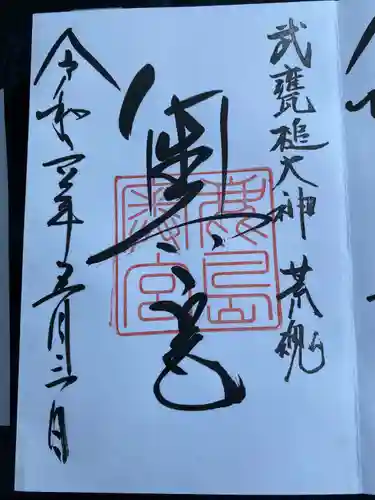 武甕槌大神 荒魂
奥宮
鹿島奥宮
令和四年五月三日